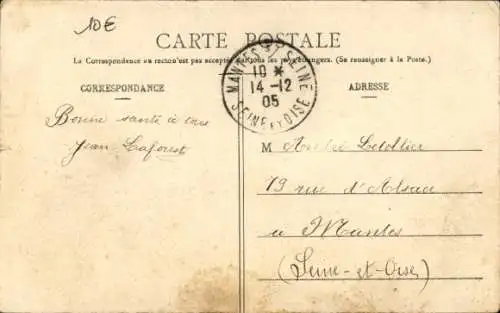 10€
CARTE POSTALE
La Correspondance au recto n'est pas acceptée par tous les pays étrangers. (Se renseigner à la Poste.)
CORRESPONDANCE
ADRESSE
MANTES SUR SEINE
10 *
14-12
05
SEINE ET OISE
Bonne santé à tous
Jean Laforest
M André Letellier
79 rue d'Alsace
a Mantes
(Seine-et-Oise)